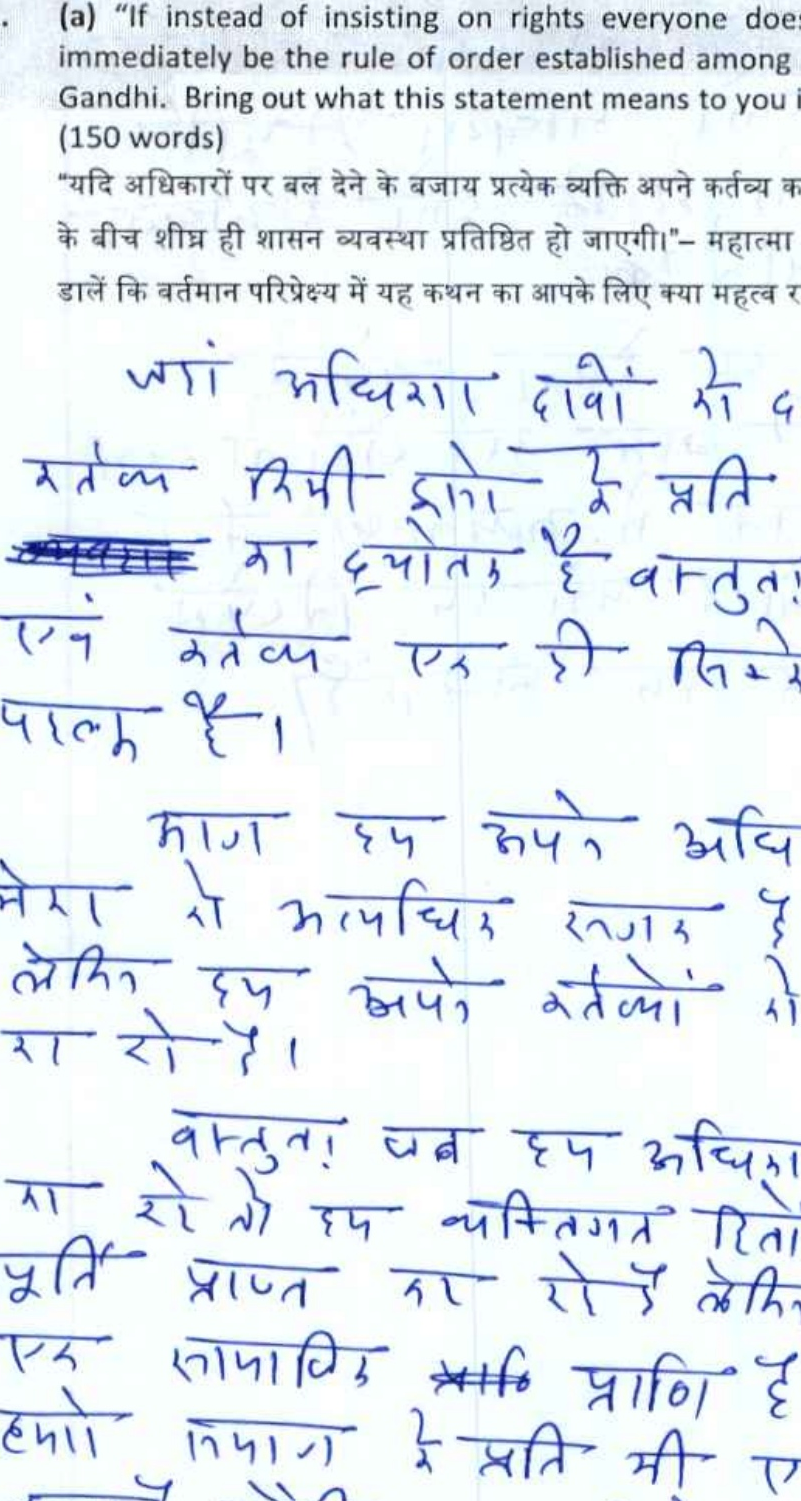 (a) “If instead of insisting on rights everyone does
immediately be the rule of order established among
Gandhi. Bring out what this statement means to you i
(150 words)
“यदि अधिकारों पर बल देने के बजाय प्रत्येक व्यक्ति अपने कर्तव्य क
के बीच शीघ्र ही शासन व्यवस्था प्रतिष्ठित हो जाएगी।”– महात्मा
डालें कि वर्तमान परिप्रेक्ष्य में यह कथन का आपके लिए क्या महत्व र
जहां अधिकार दावों को द
कर्तव्य किसी के प्रति
का द्योतक है वस्तुतः
एवं कर्तव्य एक ही सिक्के
पहलू है।
आज हम अपने अधि
को अत्यधिक सजग है
लेकिन हम अपने कर्तव्यों को
कर रहे है।
वस्तुतः जब हम अधिका
तो हम व्यक्तिगत हितों
पूर्ति प्राप्त कर रहे है लेकिन
एक सामाजिक प्राणि है
हमारे समाज के प्रति भी ए